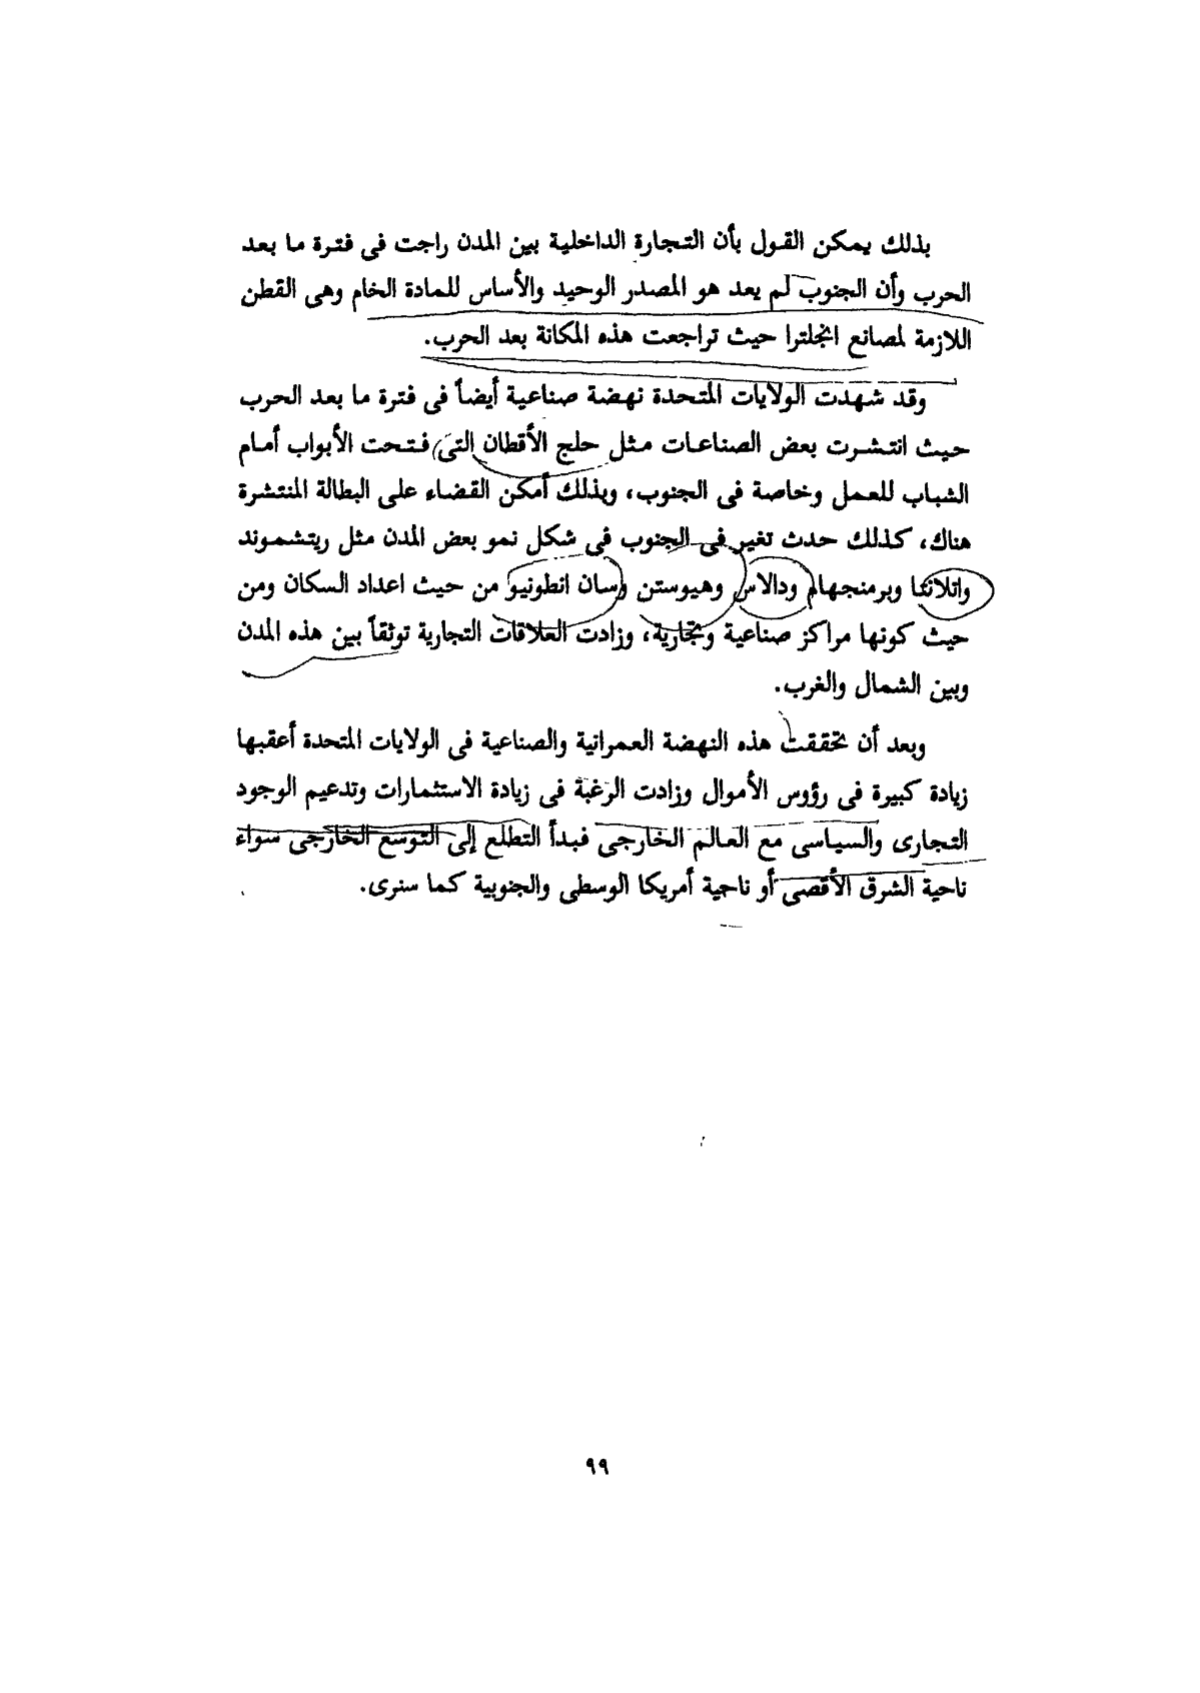 بذلك يمكن القول بأن التجارة الداخلية بين المدن راجت فى فترة ما بعد
الحرب وأن الجنوب لم يعد هو المصدر الوحيد والأساس للمادة الخام وهى القطن
اللازمة لمصانع انجلترا حيث تراجعت هذه المكانة بعد الحرب.
وقد شهدت الولايات المتحدة نهضة صناعية أيضاً فى فترة ما بعد الحرب
حيث انتشرت بعض الصناعات مثل حلج الأقطان التى فتحت الأبواب أمام
الشباب للعمل وخاصة فى الجنوب، وبذلك أمكن القضاء على البطالة المنتشرة
هناك، كذلك حدث تغير فى الجنوب فى شكل نمو بعض المدن مثل ريتشموند
واتلانتا وبرمنجهام ودالاس وهيوستن وسان انطونيو من حيث اعداد السكان ومن
حيث كونها مراكز صناعية وتجارية، وزادت العلاقات التجارية توثقاً بين هذه المدن
وبين الشمال والغرب.
وبعد أن تحققت هذه النهضة العمرانية والصناعية فى الولايات المتحدة أعقبها
زيادة كبيرة فى رؤوس الأموال وزادت الرغبة فى زيادة الاستثمارات وتدعيم الوجود
التجارى والسياسى مع العالم الخارجى فبدأ التطلع إلى التوسع الخارجى سواء
ناحية الشرق الأقصى أو ناحية أمريكا الوسطى والجنوبية كما سنرى.
٩٩